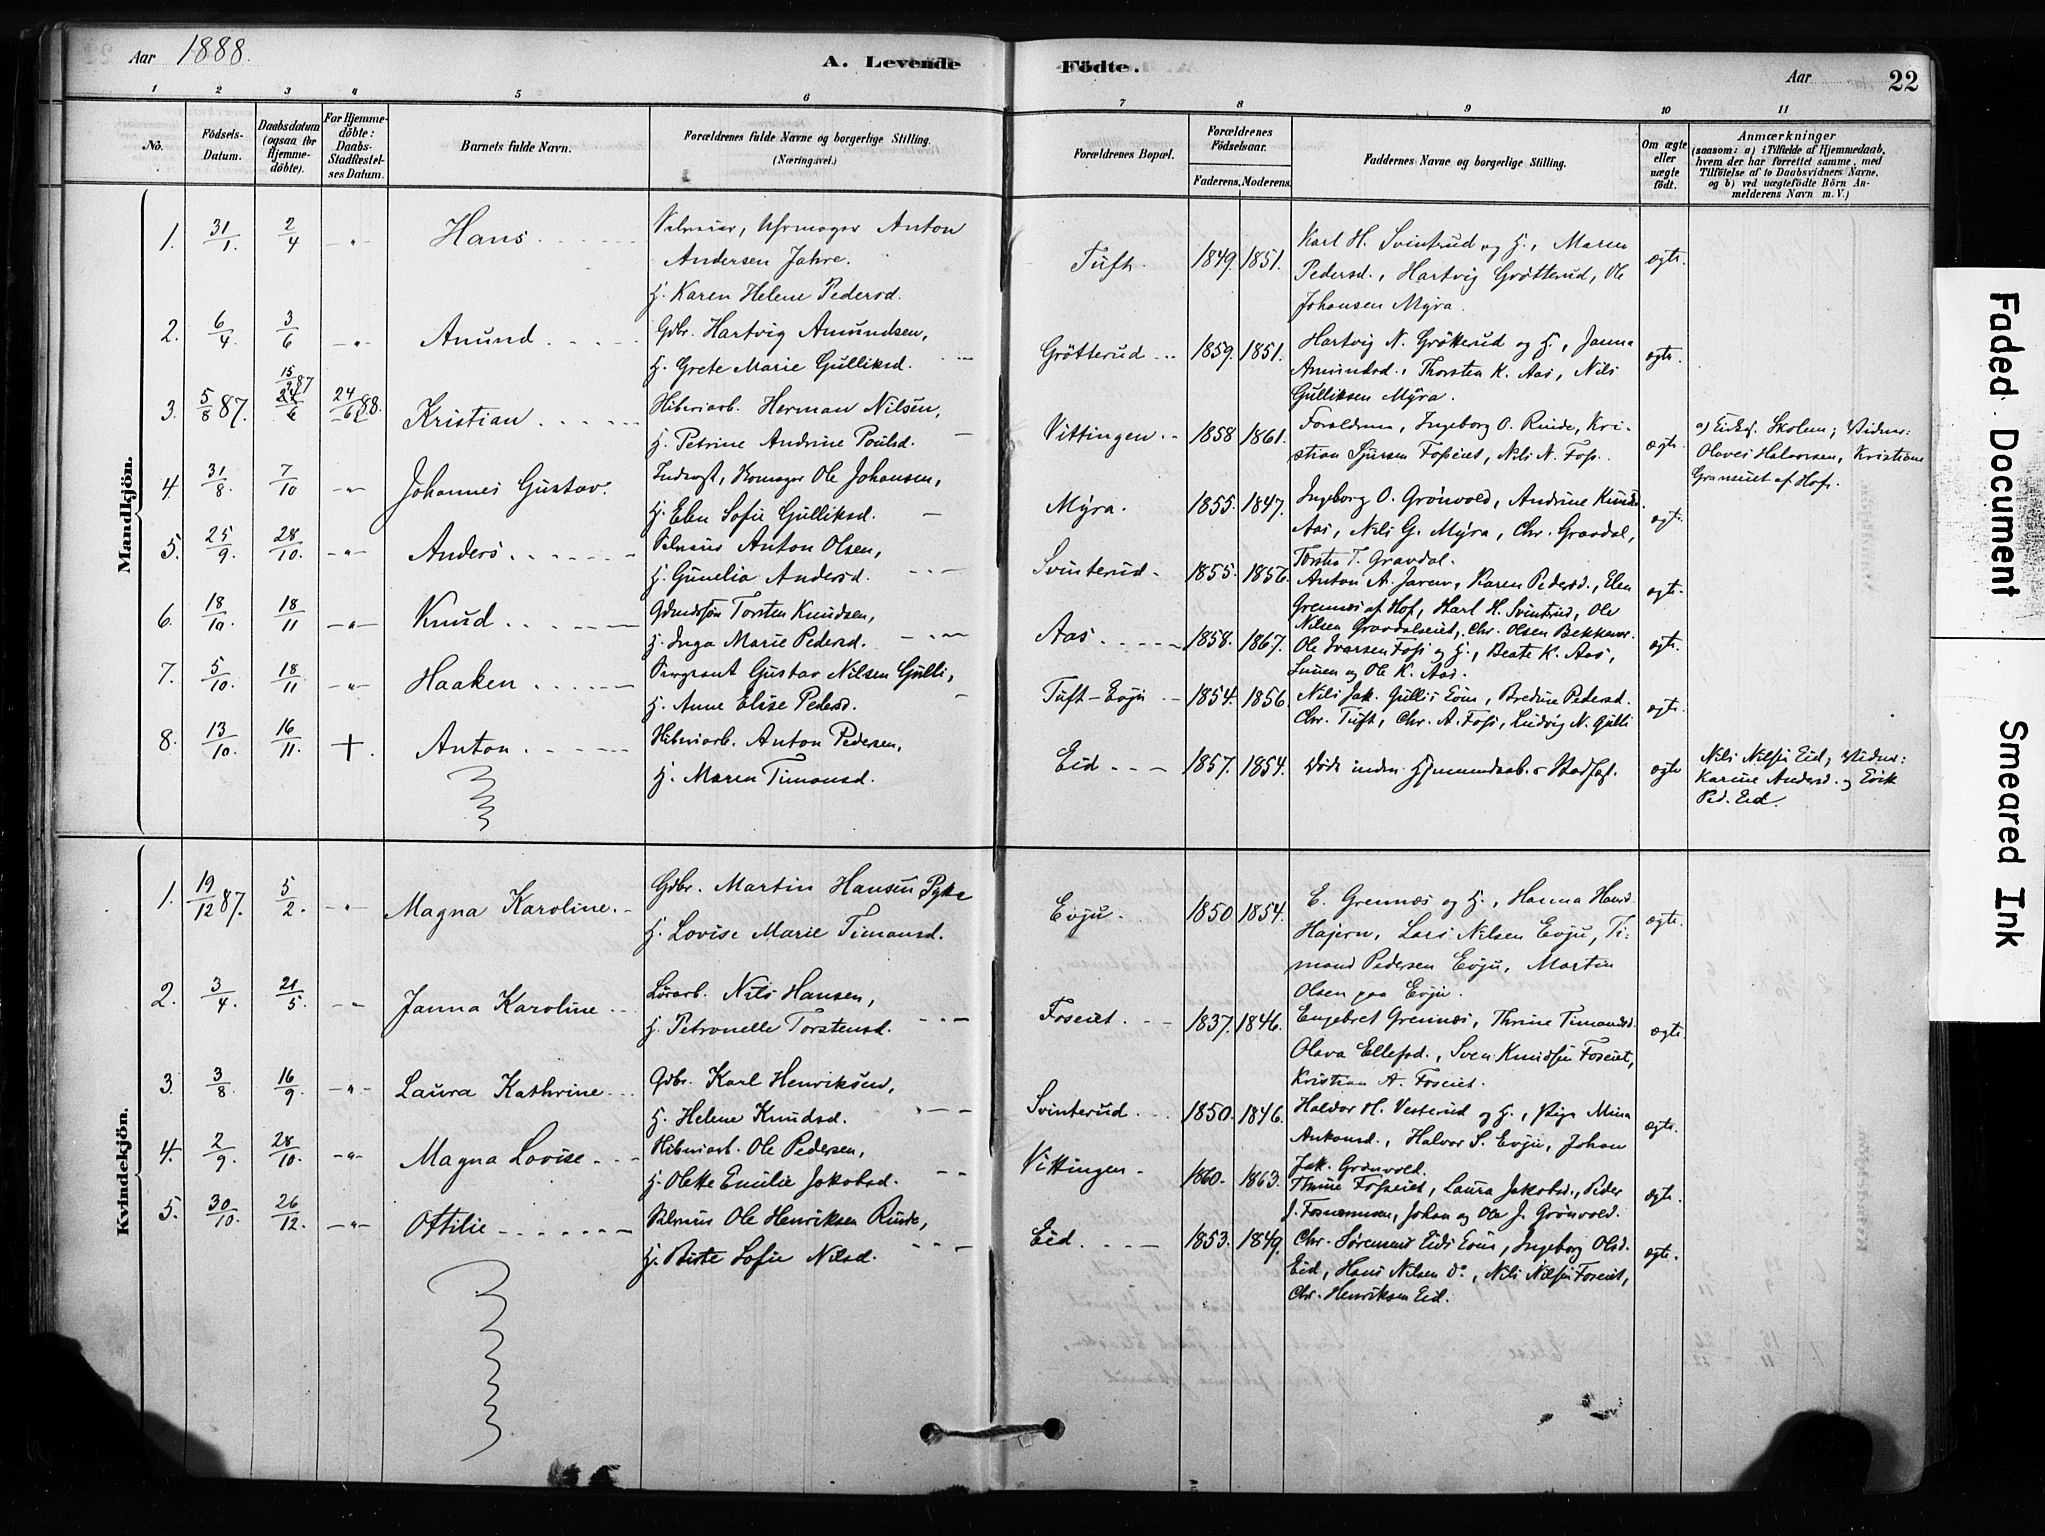 Aar 1888.
A. Levende Födte.
Aar 22
1 2 3 4 5 6 7 8 9 10 11
No.
Födsels-Datum.
Daabsdatum (ogsaa for Hjemme-döbte).
For Hjemme-döbte: Daabs-Stadfæstel-ses Datum.
Barnets fulde Navn.
Forældrenes fulde Navne og borgerlige Stilling. (Næringsvei.)
Forældrenes Bopæl.
Forældrenes Födselsaar.
Faderens. Moderens.
Faddernes Navne og borgerlige Stilling.
Om ægte eller uægte födt.
Anmærkninger
(saasom: a) i Tilfælde af Hjemmedaab,
hvem der har forrettet samme, med
Tilföielse af to Daabsvidners Navne,
og b) ved uægtefödte Börn An-
melderens Navn m. V.)
Mandkjön.
1. 31/1. 2/4 -"- Hans
Anton
Andersen Jahre.
H. Karen Helene Pedersd.
Tuft. 1849. 1851.
Karl H. Svinterud og H., Maren
Pedersd., Hartvig Grötterud, Ole
Johansen Myra.
ægte.
2. 6/4. 3/6 -"- Amund
Gdbr. Hartvig Amundsen,
H. Grete Marie Gulliksd.
Grötterud 1859. 1851.
Hartvig N. Grötterud og H., Janna
Amundsd., Thorsten K. Aas, Nils
Gulliksen Myra.
ægte.
3. 5/8 87. 15/9 87 24/6 24/6 88. Kristian
Herman Nilsen,
H. Petrine Andrine Poulsd.
Vittingen 1858 1861.
Forældrene, Ingeborg O. Rinde, Kri-
stian Sjursen Foseiet, Nils N. Fos.
ægte.
a) Skolen; Vidner:
Olaves Halvorsen, Kristiane
af Hof.
4. 31/8. 7/10 -"- Johannes Gustav.
Ole Johansen,
H. Elen Sofie Gulliksd.
Myra. 1855. 1847.
Ingeborg O. Grönvold, Andrine Knudsd.
Aas, Nils G. Myra, Chr. Gravdal,
Torsten T. Gravdal.
ægte.
5. 25/9. 28/10. -"- Anders
Anton Olsen,
H. Gunelia Andersd.
Svinterud 1855. 1856.
Anton A. Jaren, Karen Pedersd., Elen
Grennes af Hof, Karl H. Svinterud, Ole
Nilsen Gravdalseiet, Chr. Olsen
ægte.
6. 18/10. 18/11 -"- Knud
Torsten Knudsen,
H. Inga Marie Pedersd.
Aas 1858. 1867.
Ole Ivarsen Fos og H., Beate K. Aas,
og Ole K. Aas.
ægte.
7. 5/10. 18/11 -"- Haaken
Gustav Nilsen Gulli,
H. Anne Elise Pedersd.
Tuft-Evju 1854. 1856.
Nils Jak. Gulli, Bredine Pedersd.
Chr. Tuft, Chr. A. Fos, Ludvig N. Gulli
ægte.
8. 13/10. 16/11. +. Anton
Anton Pedersen,
H. Maren Timansd.
Eid 1857. 1854.
Døde inden Hjemmedaab. Stadf.
ægte
Nils Nilsen Eid, Vidner:
Karine Andersd. og Erik
Ped. Eid.
Kvindekjön.
1. 19/12 87. 5/2. -"- Magna Karoline.
Gdbr. Martin Hansen
H. Lovise Marie Timansd.
Evju. 1850 1854.
E. Grennes og H., Hanna Hansd.
Hajern, Lars Nilsen Evju, Ti-
mand Pedersen Evju, Martin
Olsen paa Evju.
ægte.
2. 3/4. 21/5. -"- Janna Karoline
Nils Hansen,
H. Petronelle Torstensd.
Foseiet. 1837. 1846.
Engebret Grennes, Thrine Timandsd.
Olava Ellefsd., Sven Knudsen Foseiet,
Kristian A. Foseiet.
ægte.
3. 3/8. 16/9. -"- Laura Kathrine
Gdbr. Karl Henriksen,
H. Helene Knudsd.
Svinterud. 1850. 1846.
Haldor H. Vesterud og H., Pige Mina
Antonsd., Halvor S. Evju, Johan
Jak. Grønvold.
ægte.
4. 2/9. 28/10. -"- Magna Lovise
Ole Pedersen,
H. Olette Emilie Jakobsd.
Vittingen 1860. 1863.
Thrine Foseiet, Laura Jakobsd., Peder
J. Johan og Ole J. Grønvold.
ægte.
5. 30/10. 26/12. -"- Ottilie
Ole Henriksen Rinde,
H. Birte Sofie Nilsd.
Eid. 1853. 1849.
Chr. Sørensen Ingeborg Olsd.
Eid, Hans Nilsen Do., Nils Nilsen Foseiet,
Chr. Henriksen Eid.
ægte.
Faded Document
Smeared Ink